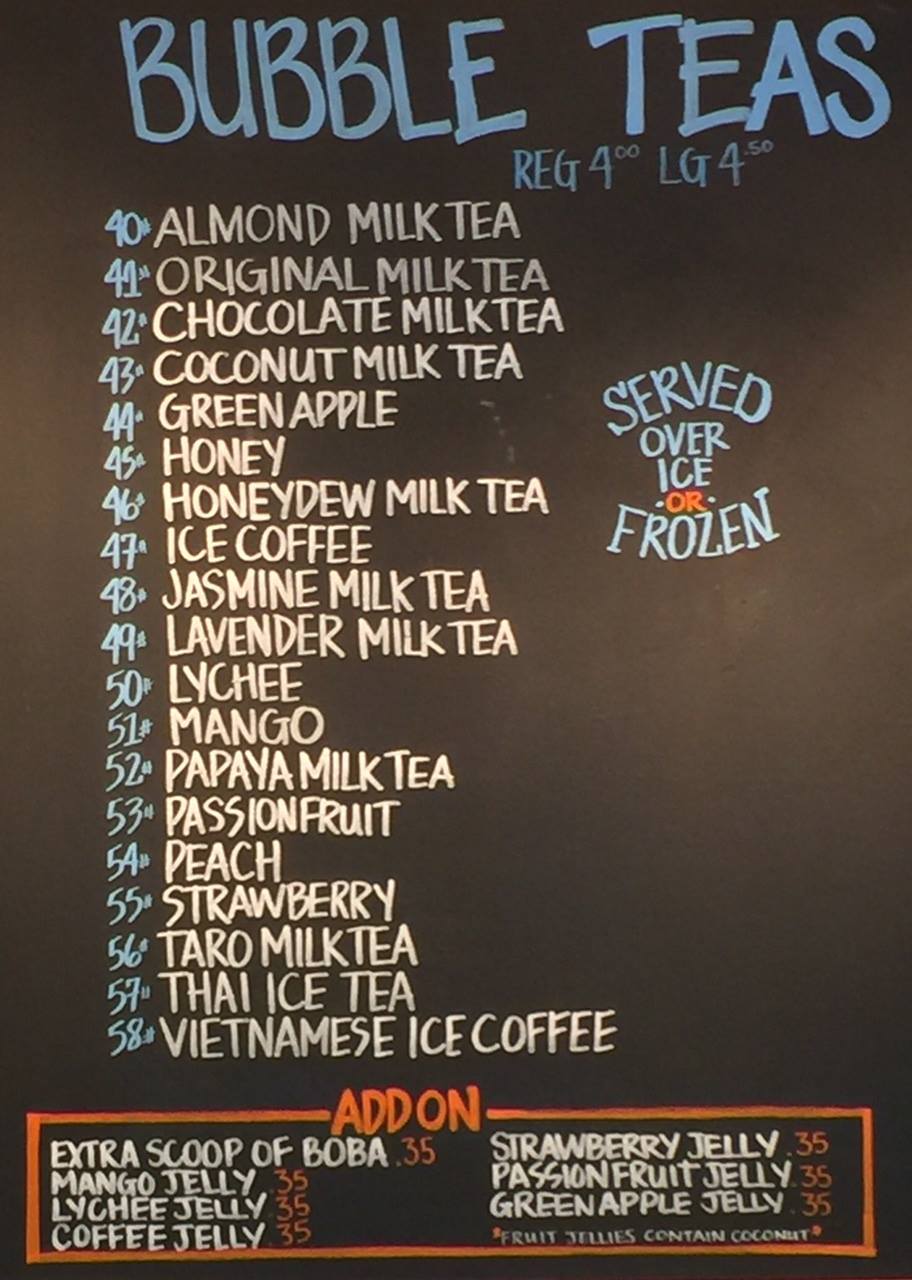 BUBBLE TEAS
REG 4.00 LG 4.50
40# ALMOND MILK TEA
41# ORIGINAL MILK TEA
42# CHOCOLATE MILK TEA
43# COCONUT MILK TEA
44# GREEN APPLE
45# HONEY
46# HONEYDEW MILK TEA
47# ICE COFFEE
48# JASMINE MILK TEA
49# LAVENDER MILK TEA
50# LYCHEE
51# MANGO
52# PAPAYA MILK TEA
53# PASSIONFRUIT
54# PEACH
55# STRAWBERRY
56# TARO MILK TEA
57# THAI ICE TEA
58# VIETNAMESE ICE COFFEE
SERVED
OVER
ICE
·OR·
FROZEN
ADD ON
EXTRA SCOOP OF BOBA .35
MANGO JELLY .35
LYCHEE JELLY .35
COFFEE JELLY .35
STRAWBERRY JELLY .35
PASSIONFRUIT JELLY .35
GREEN APPLE JELLY .35
*FRUIT JELLIES CONTAIN COCONUT*